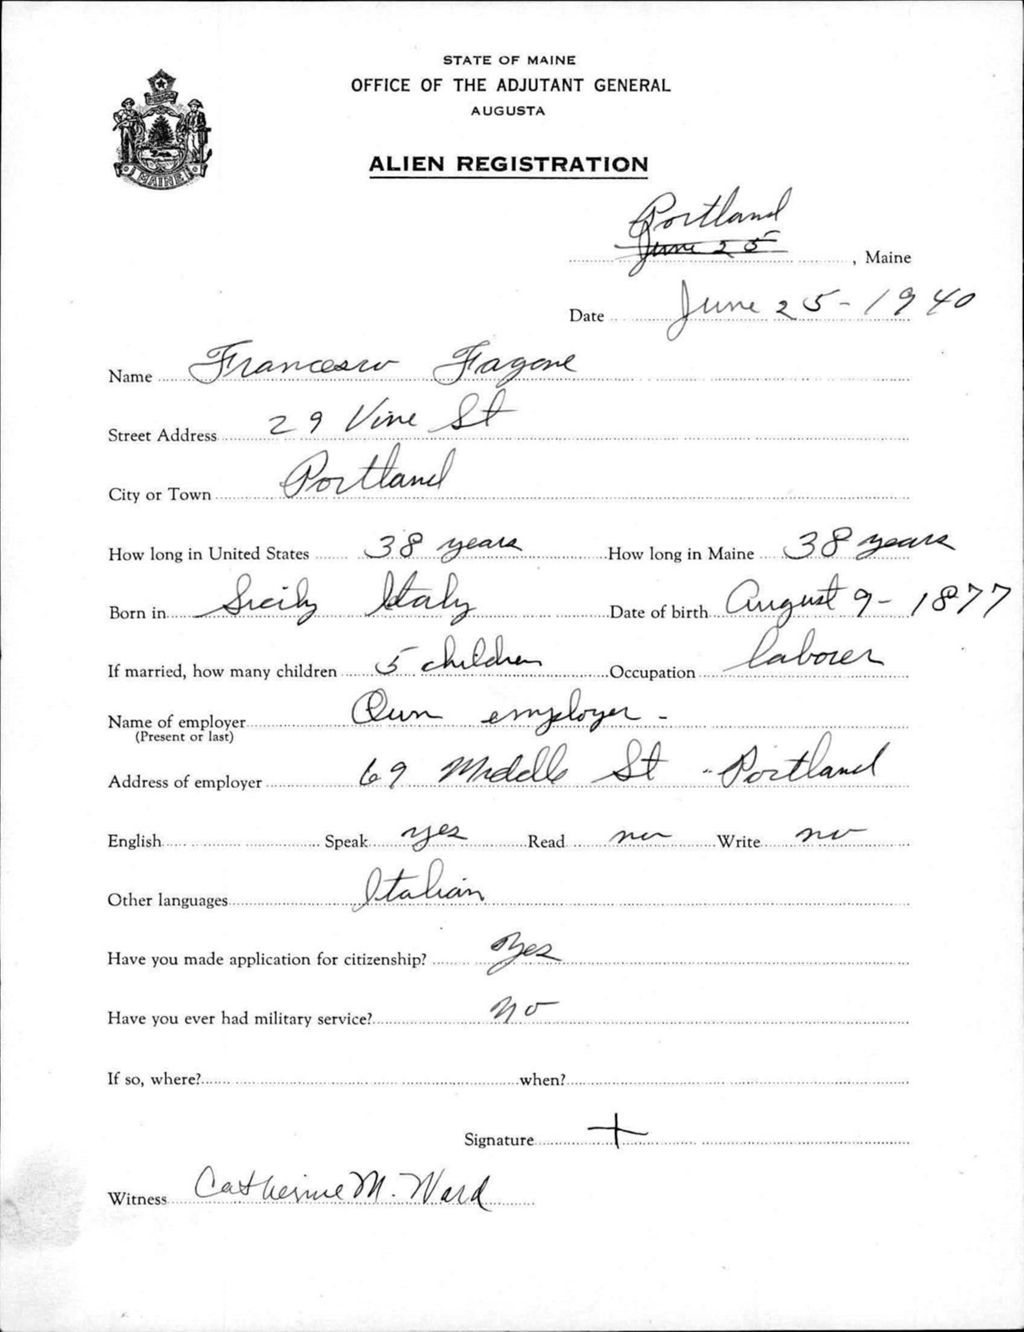 STATE OF MAINE
OFFICE OF THE ADJUTANT GENERAL
AUGUSTA
ALIEN REGISTRATION
MAINE
Portland
June 25, Maine
Date June 25-1940
Name Francesco Fagone
Street Address 29 Vine St
City or Town Portland
How long in United States 38 years How long in Maine 38 years
Born in Sicily Italy Date of birth August 9-1877
If married, how many children 5 children Occupation laborer
Name of employer Own employer -
(Present or last)
Address of employer 69 Middle St - Portland
English Speak yes Read no Write no
Other languages Italian
Have you made application for citizenship? Yes
Have you ever had military service? no
If so, where? when?
Signature +
Witness Catherine M. Ward